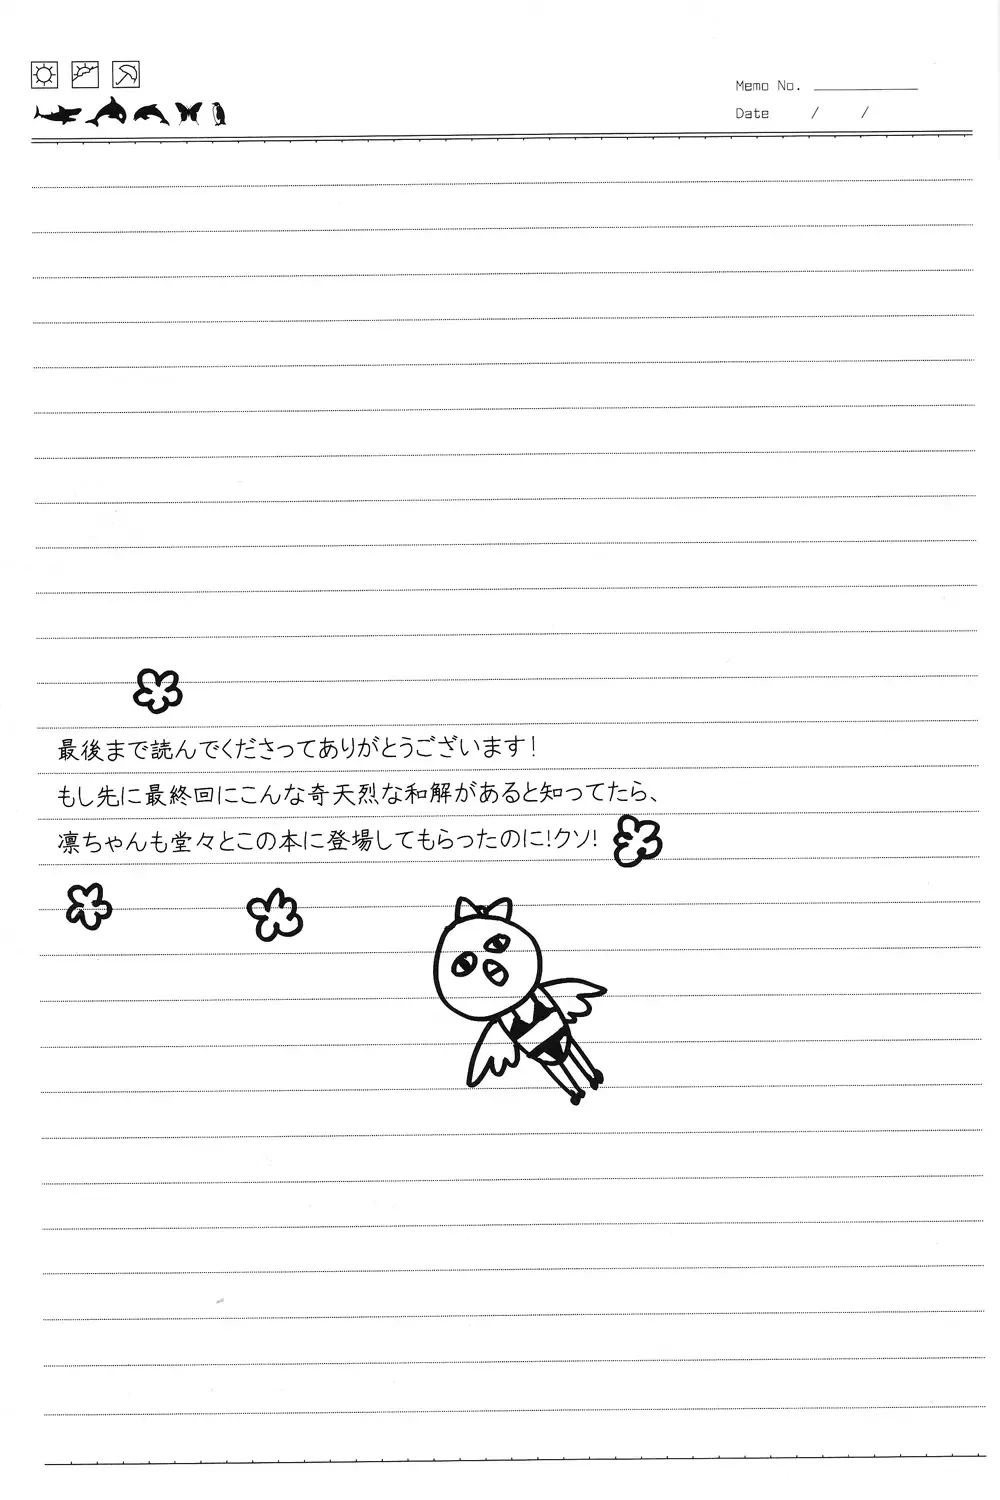 Memo No.
Date / /
最後まで読んでくださってありがとうございます!
もし先に最終回にこんな奇天烈な和解があると知ってたら、
凛ちゃんも堂々とこの本に登場してもらったのに!クソ!